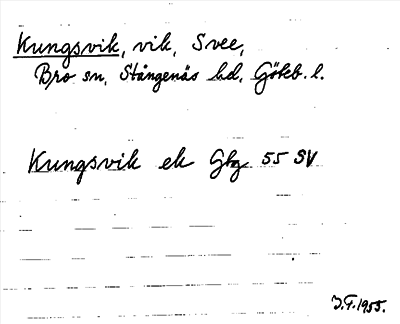 Kungsvik, vik, Svee,
Bro sn, Stångenäs hd, Göteb. l.
Kungsvik ek Gbg 55 SV
J.F. 1955.